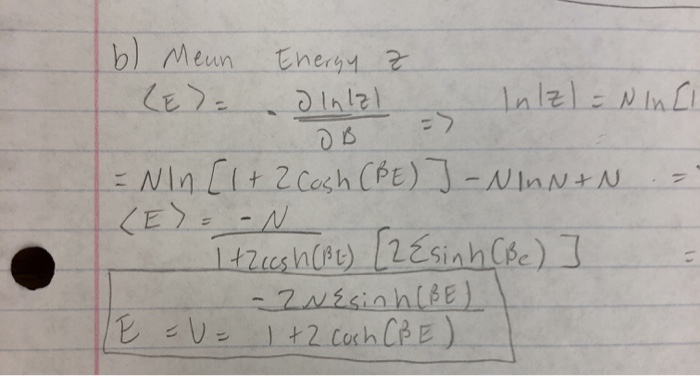 b) Mean Energy Z
<E> = - ∂ln|z| / ∂B => ln|z| = N ln [1
= N ln [1 + 2 cosh (βE)] - N ln N + N =
<E> = -N / 1+2cosh(βE) [2Ɛsinh(βe)] =
E = U = -2NƐsinh(βE) / 1+2 cosh(βE)